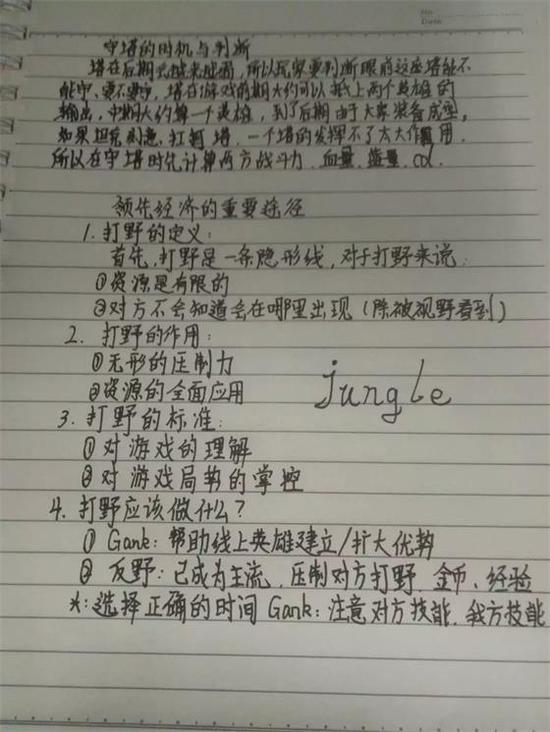 No:
Date:
守塔的时机与判断
塔在后期会越来越弱,所以玩家要判断眼前这座塔能不
能守、要不要守,塔在游戏前期大约可以抵上两个英雄的
输出,中期大约算一个英雄,到了后期由于大家装备成型,
如果坦克刻意扛塔,一个塔的发挥不了太大作用.
所以在守塔时先计算两方战斗力、血量、蓝量、cd.
领先经济的重要途径
1.打野的定义:
首先,打野是一条隐形线,对于打野来说:
①资源是有限的
②对方不会知道会在哪里出现(除被视野看到)
2.打野的作用:
①无形的压制力
②资源的全面应用
jungle
3.打野的标准:
①对游戏的理解
②对游戏局势的掌控
4.打野应该做什么?
① Gank:帮助线上英雄建立/扩大优势
② 反野:已成为主流、压制对方打野、金币、经验
*:选择正确的时间Gank:注意对方技能、我方技能